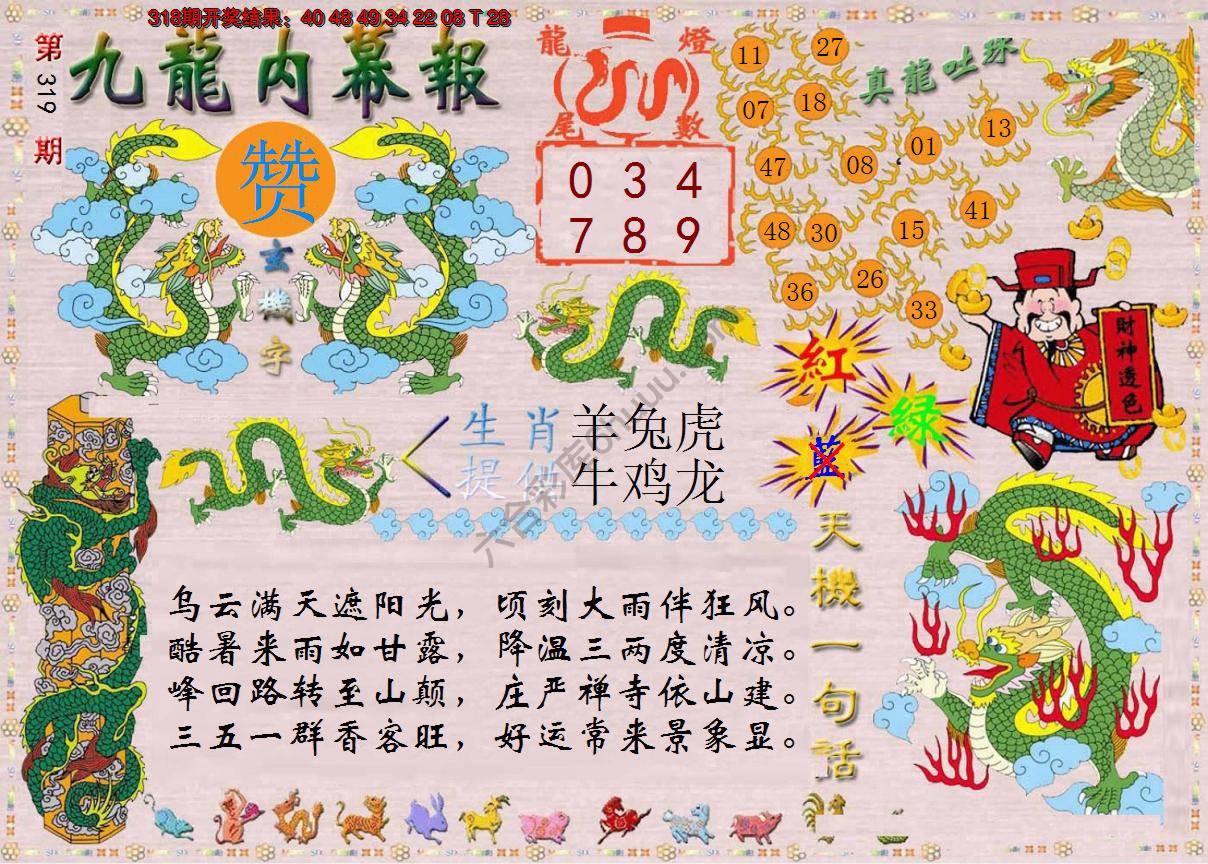 318期开奖结果：40 48 49 34 22 08 T 28
第319期
九龍内幕報
赞
玄機字
龍燈
尾數
0 3 4
7 8 9
真龍吐珠
11 27
07 18
01 13
47 08
48 30 15 41
36 26 33
財神透色
紅
綠
藍
生肖 羊兔虎
提供 牛鸡龙
天機一句話
乌云满天遮阳光，顷刻大雨伴狂风。
酷暑来雨如甘露，降温三两度清凉。
峰回路转至山颠，庄严禅寺依山建。
三五一群香客旺，好运常来景象显。